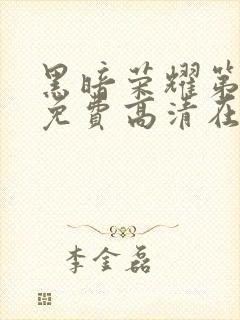 黑暗荣耀第
免费高清在
李金磊